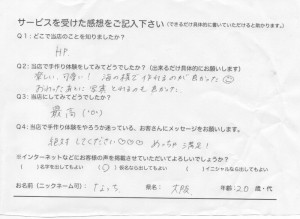 サービスを受けた感想をご記入下さい（できるだけ具体的に書いていただけると助かります。）
Q1：どこで当店のことを知りましたか？
HP
Q2：当店で手作り体験をしてみてどうでしたか？（出来るだけ具体的にお願いします）
楽しい、可愛い！ 海の横で作れるのが良かった
Q3：当店にしてみてどうでしたか？
最高
Q4：当店で手作り体験をやろうか迷っている、お客さんにメッセージをお願いします。
絶対してください めっちゃ満足！
※インターネットなどにお客様の声を掲載させていただいてよろしいでしょうか？
（ ）名字を出してもよい （○）仮名なら出してもよい （ ）イニシャルなら出してもよい
お名前（ニックネーム可）： 県名：大阪 年齢：20 歳・代